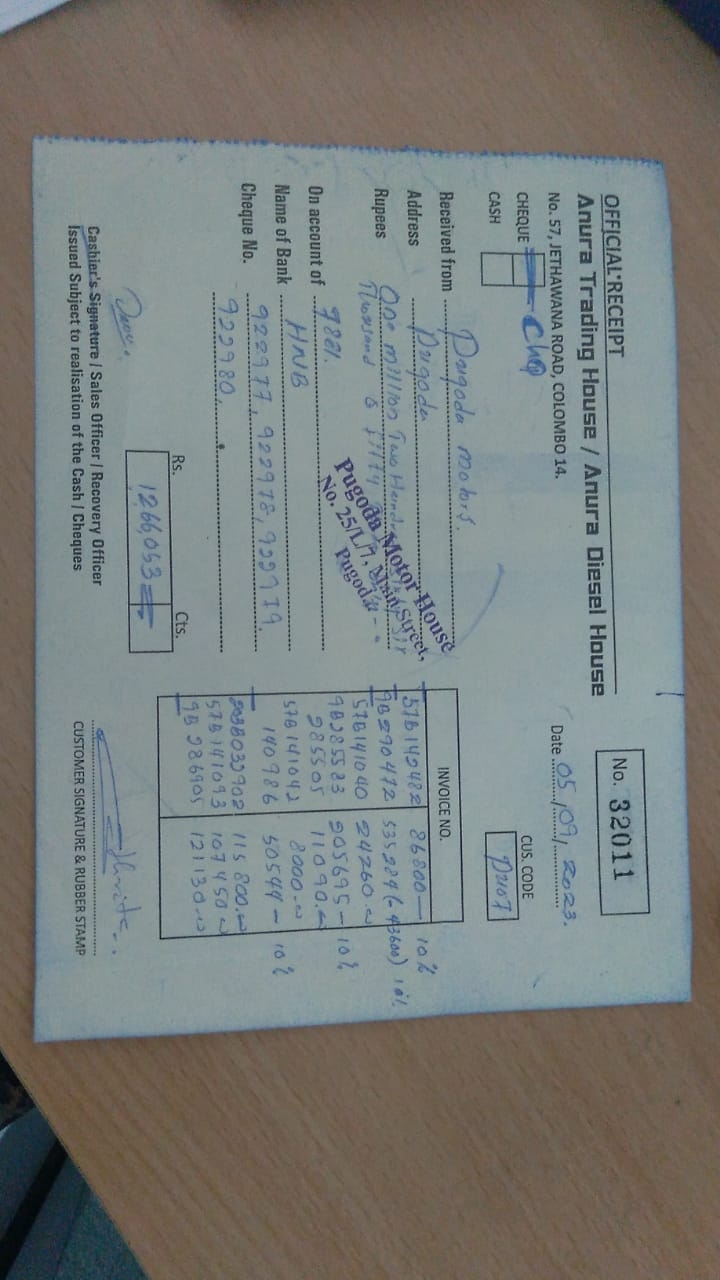 OFFICIAL RECEIPT
Anura Trading House / Anura Diesel House
No. 57, JETHAWANA ROAD, COLOMBO 14.
No. 32011
Date 05/09/2023.
CHEQUE
CASH
CUS. CODE
PU07
Received from Pugoda motors.
Address Pugoda
Rupees One million Two
Thousand &
Pugoda Motor House
No. 25/L/7, Main Street,
Pugoda
On account of 7821.
Name of Bank HNB
Cheque No. 922977, 922978, 922979,
922980.
INVOICE NO.
57B142482 86800— 10%
9B290472 535284 (-43600) 10%
57B141040 24260.00
9B285583 205695— 10%
285505 11090.00
57B141042 8000.00
140986 50544— 10%
115800.00
57B141093 107450.00
9B286905 121130.00
Rs. Cts.
1266,053
Cashier's Signature / Sales Officer / Recovery Officer
Issued Subject to realisation of the Cash / Cheques
CUSTOMER SIGNATURE & RUBBER STAMP